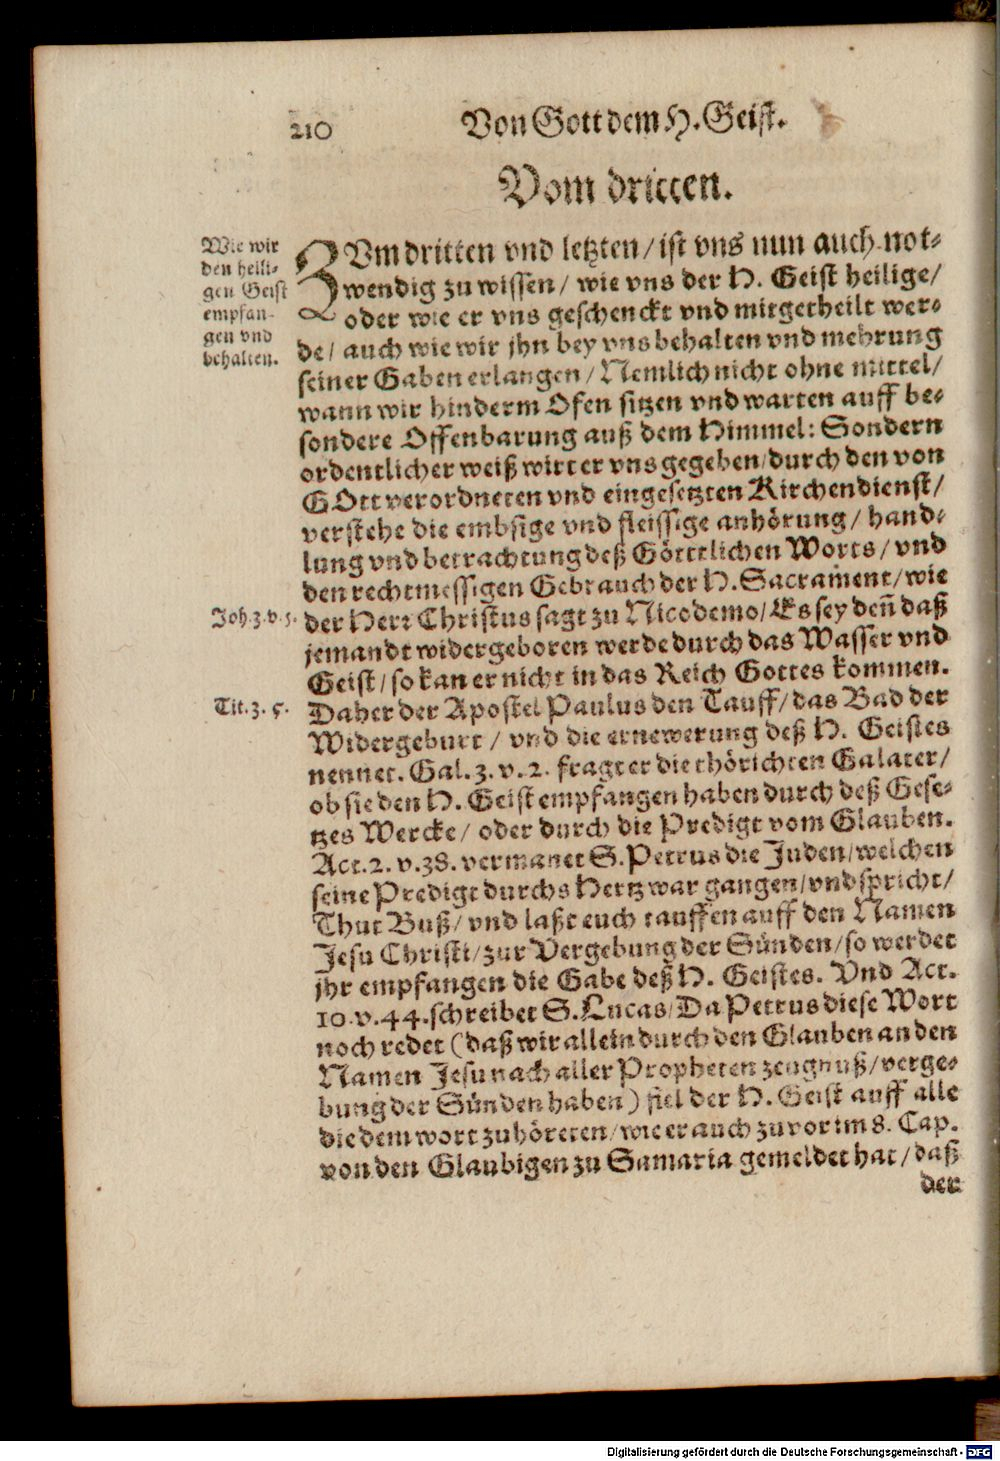 210
Von Gott dem H. Geist.
Vom dritten.
Wie wir
den heili-
gen Geist
empfan-
gen vnd
behalten.
ZVm dritten vnd letzten/ ist vns nun auch not-
wendig zu wissen/ wie vns der H. Geist heilige/
oder wie er vns geschenckt vnd mitgetheilt wer-
de/ auch wie wir jhn bey vns behalten vnd mehrung
seiner Gaben erlangen/ Nemlich nicht ohne mittel/
wann wir hinderm Ofen sitzen vnd warten auff be-
sondere Offenbarung auß dem Himmel: Sondern
ordentlicher weiß wirt er vns gegeben/ durch den von
GOtt verordneten vnd eingesetzten Kirchendienst/
verstehe die embsige vnd fleissige anhörung/ hand-
lung vnd betrachtung deß Göttlichen Worts/ vnd
den rechtmessigen Gebrauch der H. Sacrament/ wie
Joh. 3. v. 5.
der Herr Christus sagt zu Nicodemo/ Es sey deñ daß
jemandt widergeboren werde durch das Wasser vnd
Geist/ so kan er nicht in das Reich Gottes kommen.
Tit. 3. 5.
Daher der Apostel Paulus den Tauff/ das Bad der
Widergeburt/ vnd die ernewerung deß H. Geistes
nennet. Gal. 3. v. 2. fragt er die thörichten Galater/
ob sie den H. Geist empfangen haben durch deß Gese-
tzes Wercke/ oder durch die Predigt vom Glauben.
Act. 2. v. 38. vermanet S. Petrus die Juden/ welchen
seine Predigt durchs Hertz war gangen/ vnd spricht/
Thut Buß/ vnd laßt euch tauffen auff den Namen
Jesu Christi/ zur Vergebung der Sünden/ so werdet
jhr empfangen die Gabe deß H. Geistes. Vnd Act.
10. v. 44. schreibet S. Lucas/ Da Petrus diese Wort
noch redet (daß wir allein durch den Glauben an den
Namen Jesu nach aller Propheten zeugnuß/ verge-
bung der Sünden haben) fiel der H. Geist auff alle
die dem wort zuhöreten/ wie er auch zuvor im 8. Cap.
von den Glaubigen zu Samaria gemeldet hat/ daß
der
Digitalisierung gefördert durch die Deutsche Forschungsgemeinschaft - DFG